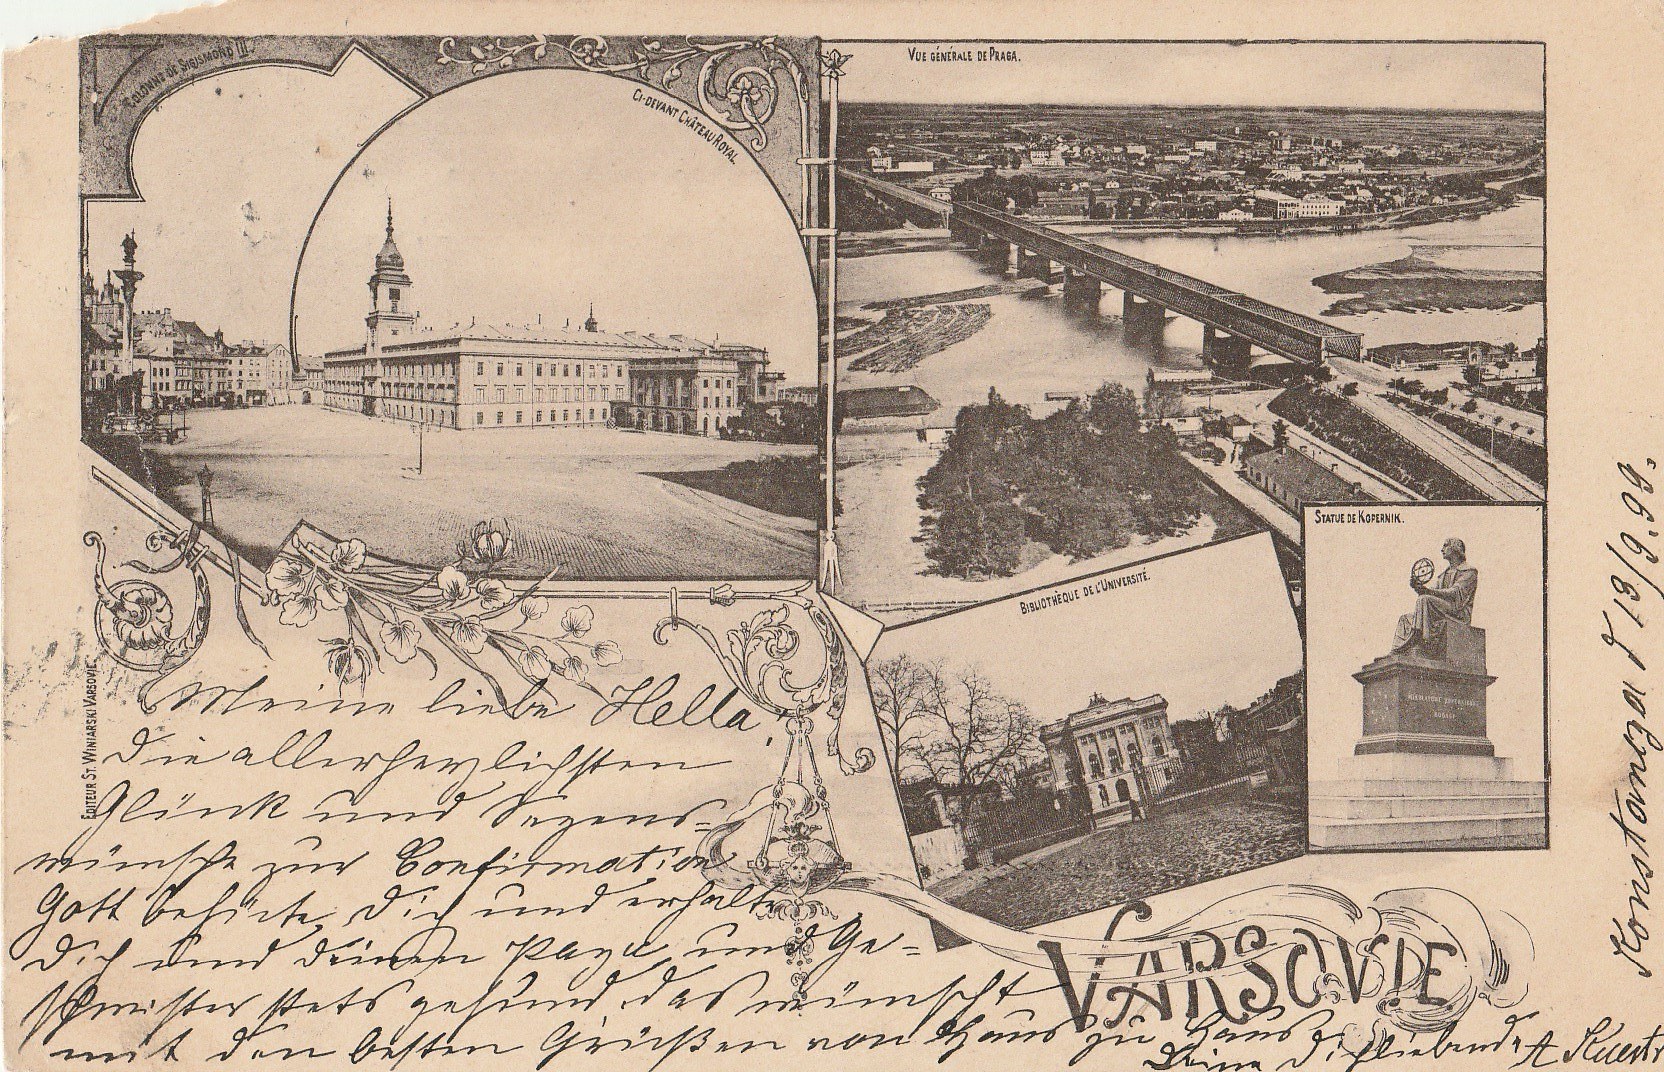 COLONNE DE SIGISMOND III.
CI-DEVANT CHÂTEAU ROYAL.
VUE GÉNÉRALE DE PRAGA.
STATUE DE KOPERNIK.
BIBLIOTHÈQUE DE L'UNIVERSITÉ.
EDITEUR ST. WINIARSKI VARSOVIE.
VARSOVIE
Meine liebe Hella,
die allerherzlichsten
Glück und Segens-
wünsche zur Confirmation
Gott behüte Dich und erhalte
Dich und Deinen Papa und Ge-
schwister stets gesund, das wünscht
mit den besten Grüßen von Haus zu Haus
Deine Dichliebende A
Konstancza d 13/9.99.